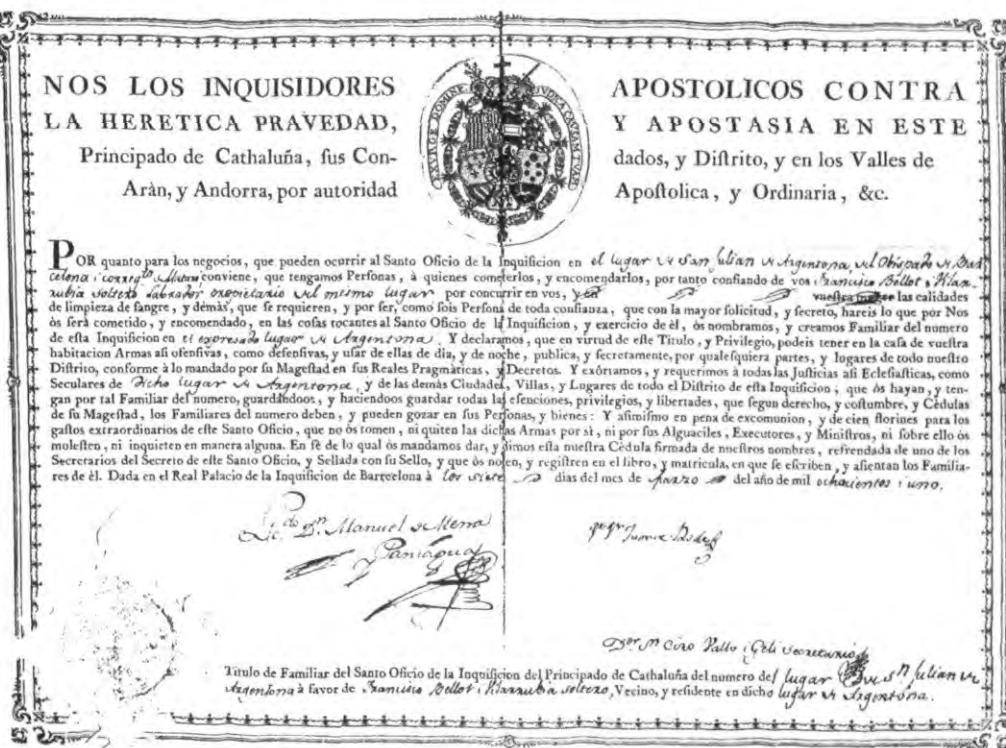 NOS LOS INQUISIDORES APOSTOLICOS CONTRA
LA HERETICA PRAVEDAD, Y APOSTASIA EN ESTE
Principado de Cathaluña, ſus Con- dados, y Diſtrito, y en los Valles de
Aràn, y Andorra, por autoridad Apoſtolica, y Ordinaria, &c.
EXURGE DOMINE JUDICA CAUSAM TUAM
POR quanto para los negocios, que pueden ocurrir al Santo Oficio de la Inquiſicion en el lugar de San Julian de Argentona, del Obispado de Bar
celona i correg.to Mataró conviene, que tengamos Perſonas, à quienes cometerlos, y encomendarlos, por tanto confiando de vos Francisco Bellot i Vilar
rubia soltero Labrador propietario del mismo lugar por concurrir en vos, y en vueſtra muger las calidades
de limpieza de ſangre, y demàs, que ſe requieren, y por ſer, como ſois Perſona de toda confianza, que con la mayor ſolicitud, y secreto, hareis lo que por Nos
òs ſerà cometido, y encomendado, en las coſas tocantes al Santo Oficio de la Inquiſicion, y exercicio de èl, òs nombramos, y creamos Familiar del numero
de eſta Inquiſicion en el expresado lugar de Argentona. Y declaramos, que en virtud de eſte Titulo, y Privilegio, podeis tener en la caſa de vueſtra
habitacion Armas aſi ofenſivas, como defenſivas, y uſar de ellas de dia, y de noche, publica, y ſecretamente, por qualeſquiera partes, y logares de todo nueſtro
Diſtrito, conforme à lo mandado por ſu Mageſtad en ſus Reales Pragmaticas, y Decretos. Y exòrtamos, y requerimos à todas las Juſticias aſi Ecleſiaſticas, como
Seculares de Dicho lugar de Argentona, y de las demàs Ciudades, Villas, y Lugares de todo el Diſtrito de eſta Inquiſicion; que òs hayan, y ten-
gan por tal Familiar del numero, guardandoos, y haciendoos guardar todas las eſenciones, privilegios, y libertades, que ſegun derecho, y coſtumbre, y Cedulas
de ſu Mageſtad, los Familiares del numero deben, y pueden gozar en ſus Perſonas, y bienes: Y aſimiſmo en pena de excomunion, y de cien florines para los
gaſtos extraordinarios de eſte Santo Oficio, que no òs tomen, ni quiten las dichas Armas por sì, ni por ſus Alguaciles, Executores, y Miniſtros, ni ſobre ello òs
moleſten, ni inquieten en manera alguna. En fè de lo qual òs mandamos dar, y dimos eſta nueſtra Cèdula firmada de nueſtros nombres, refrendada de uno de los
Secretarios del Secreto de eſte Santo Oficio, y Sellada con ſu Sello, y que òs noten, y regiſtren en el libro, y matricula, en que ſe eſcriben, y aſientan los Familia-
res de èl. Dada en el Real Palacio de la Inquiſicion de Barcelona à los siete dias del mes de Marzo del año de mil ochocientos i uno.
Lic.do D.n Manuel de Mena
y Paniagua
D.n Ciro Valls i Geli Secretario
Titulo de Familiar del Santo Oficio de la Inquiſicion del Principado de Cathaluña del numero del lugar de S.n Julian de
Argentona à favor de Francisco Bellot i Vilarrubia soltero, Vecino, y reſidente en dicho lugar de Argentona.